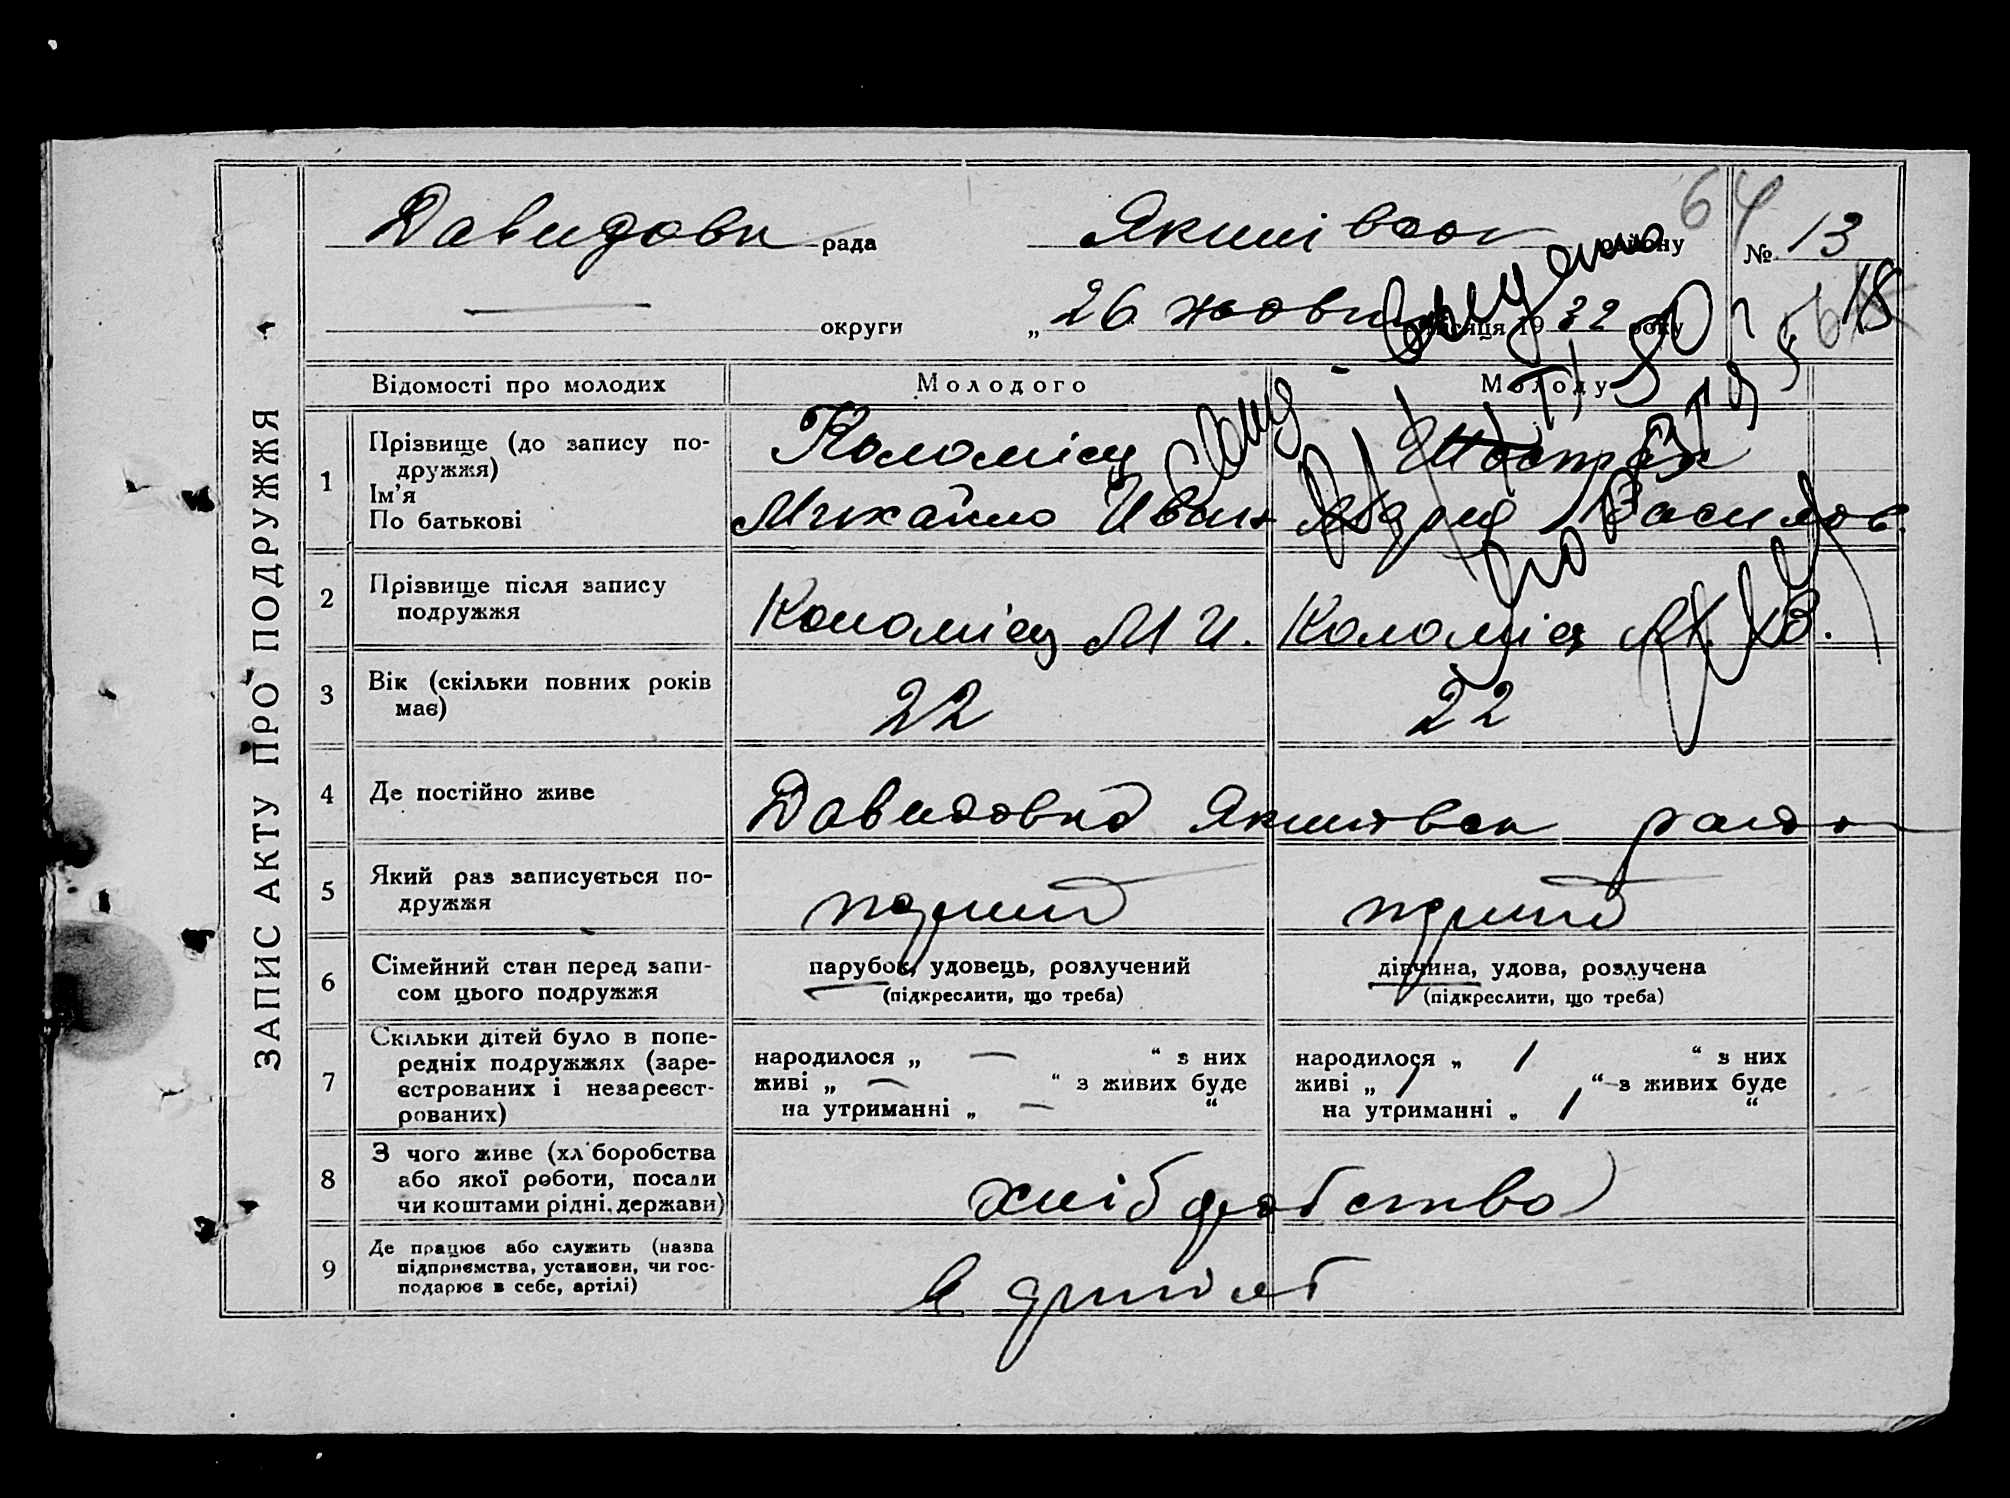 ЗАПИС АКТУ ПРО ПОДРУЖЖЯ
64
Давидовк рада
Якимівськ району
№ 13
округи
„ 26 жовт місяця 19 32 року
18
Відомості про молодих
Молодого
Молоду
1
Прізвище (до запису по-
дружжя)
Ім’я
По батькові
Коломієц
Михайло Иван
Василов
2
Прізвище після запису
подружжя
Коломієц М И.
Коломієц В.
3
Вік (скільки повних років
має)
22
22
4
Де постійно живе
Давидовка Якимовск район
5
Який раз записується по-
дружжя
6
Сімейний стан перед запи-
сом цього подружжя
парубок, удовець, розлучений
(підкреслити, що треба)
дівчина, удова, розлучена
(підкреслити, що треба)
7
Скільки дітей було в попе-
редніх подружжях (заре-
єстрованих і незареєст-
рованих)
народилося „ — “ з них
живі „ — “ з живих буде
на утриманні „ — “
народилося „ / “ з них
живі „ / “ з живих буде
на утриманні „ / “
8
З чого живе (хліборобства
або якої роботи, посади
чи коштами рідні, держави)
хліборобство
9
Де працює або служить (назва
підприємства, установи, чи гос-
подарює в себе, артілі)
в